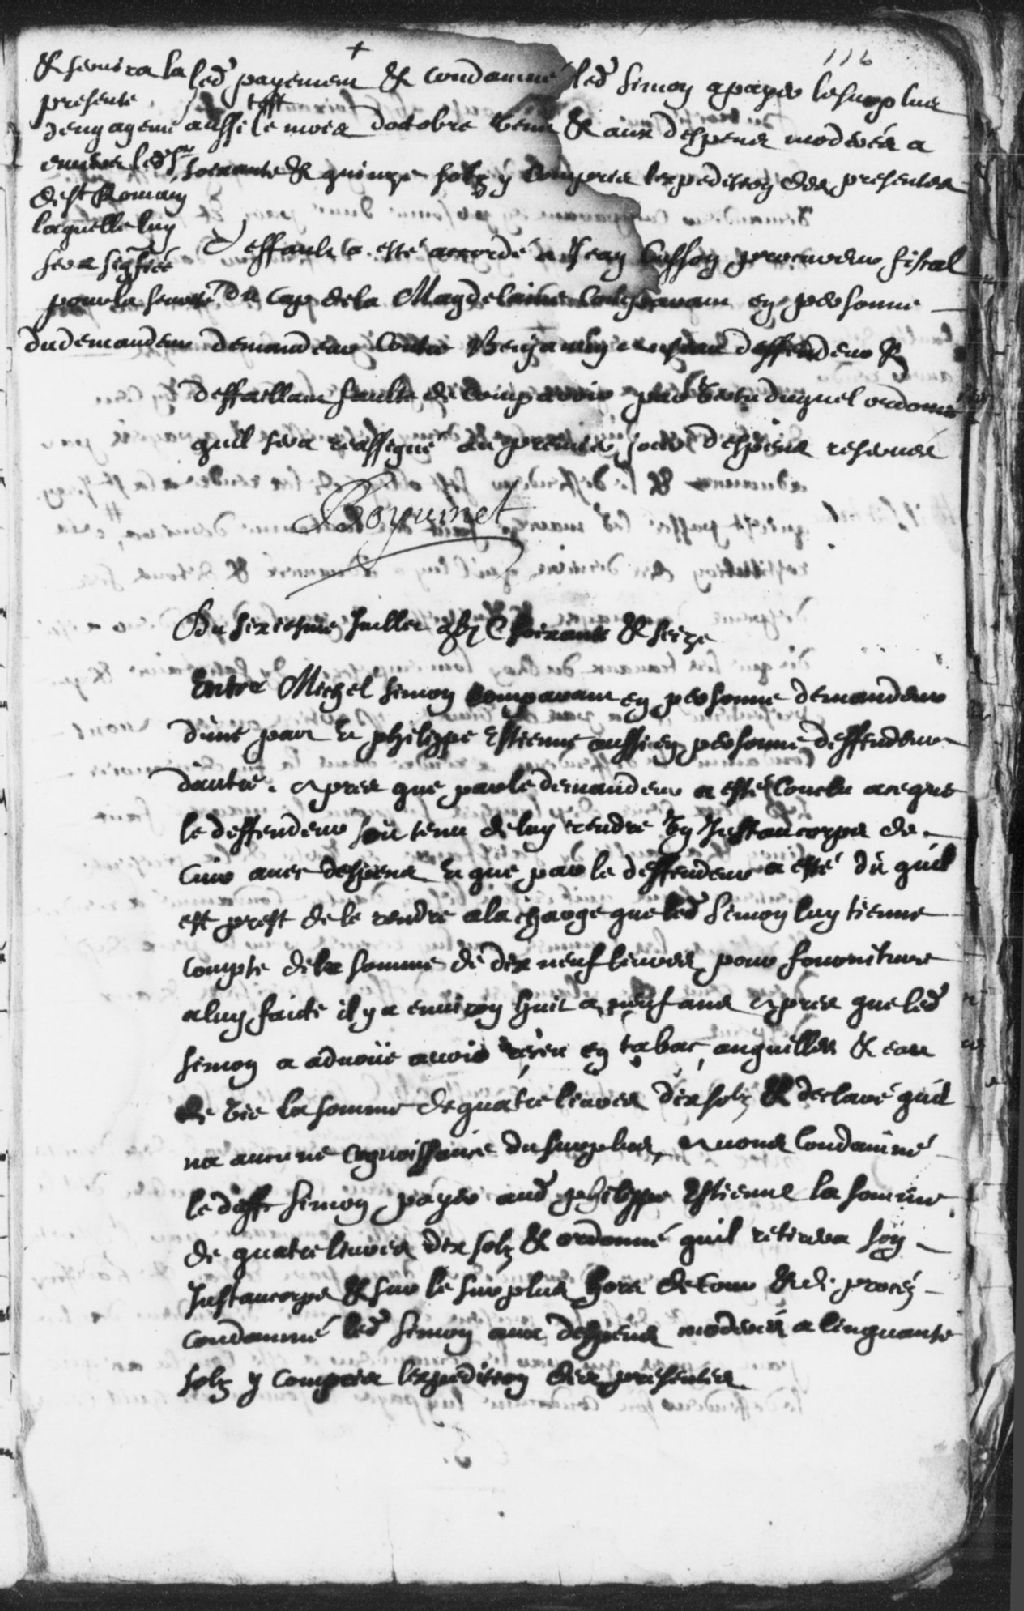 116
& servira la
presente
dengagem
envers led sr
de st Romain
laquelle luy
sera signifiée
pour la seureté
du demandeur
led payement & condamné led Simon a payer le surplus
aussi tost le mois doctobre venu & aux despens moderés a
soixante & quinze solz y compris lexpedition des presentes
Deffault a esté accordé a Jean Cusson procureur fiscal
du Cap de la Magdelaine comparant en personne
demandeur contre Benjamin deffendeur &
deffaillant faulte de comparoir par vertu duquel ordonné
quil sera reassigné au premier jour despens reservés
Boyuinet
Du sixiesme Juillet gbj C soixante & seize
Entre Michel Simon comparant en personne demandeur
dune part et philippe Estienne aussi en personne deffendeur
dautre. Apres que par le demandeur a esté conclu a ce que
le deffendeur soit tenu de luy rendre un Justaucorps de
cuir avec despens et que par le deffendeur a esté dit quil
est prest de le rendre a la charge que led Simon luy tienne
compte de la somme de dix neuf livres pour fourniture
a luy faite il y a environ huit a neuf ans Apres que led
Simon a advoüé avoir reçeu en tabac, anguilles & eau
de vie la somme de quatre livres dix solz & declaré quil
na aucune cognoissance du surplus, Avons condamné
le dit Simon payer aud philippe Estienne la somme
de quatre livres dix solz & ordonné quil retirera son
Justaucorps & sur le surplus hors de cour & de procés
condamné led Simon aux despens moderés a cinquante
solz y compris lexpedition des presentes